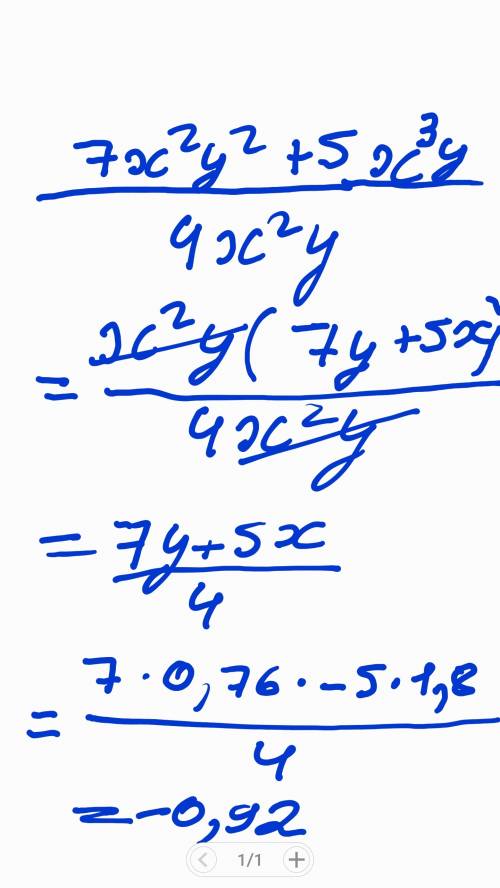 7x²y² + 5x³y
4x²y
= x²y(7y + 5x)
4x²y
= 7y + 5x
4
= 7 · 0,76 · - 5 · 1,8
4
= -0,92
1/1